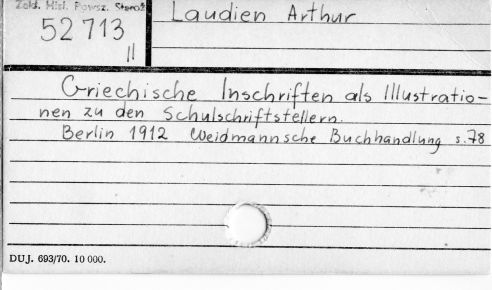 Zakł. Hist. Powsz. Staroż
52 713
II
Laudien Arthur
Griechische Inschriften als Illustratio-
nen zu den Schulschriftstellern.
Berlin 1912 Weidmannsche Buchhandlung s. 78
DUJ. 693/70. 10 000.